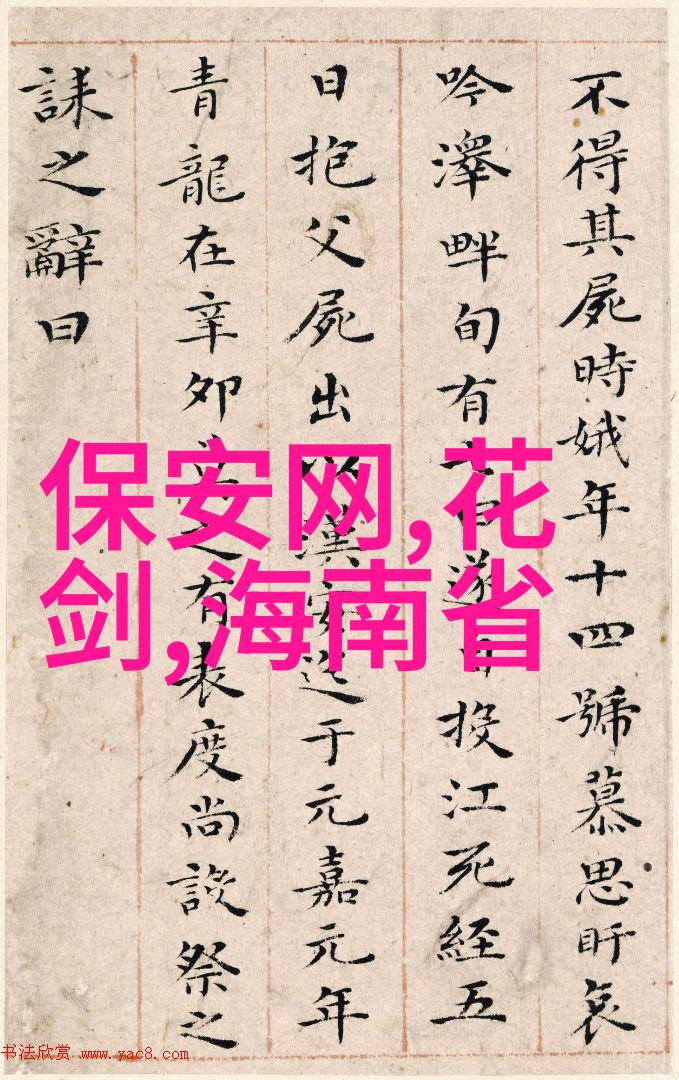 不得其屍時娥年十四號慕思盱哀
吟澤畔旬有七日遂自投江死經五
日抱父屍出以漢安迄于元嘉元年
青龍在辛卯莫之有表度尚設祭之
誄之辭曰
保安网,花
剑,海南省
书法欣赏 www.yac8.com